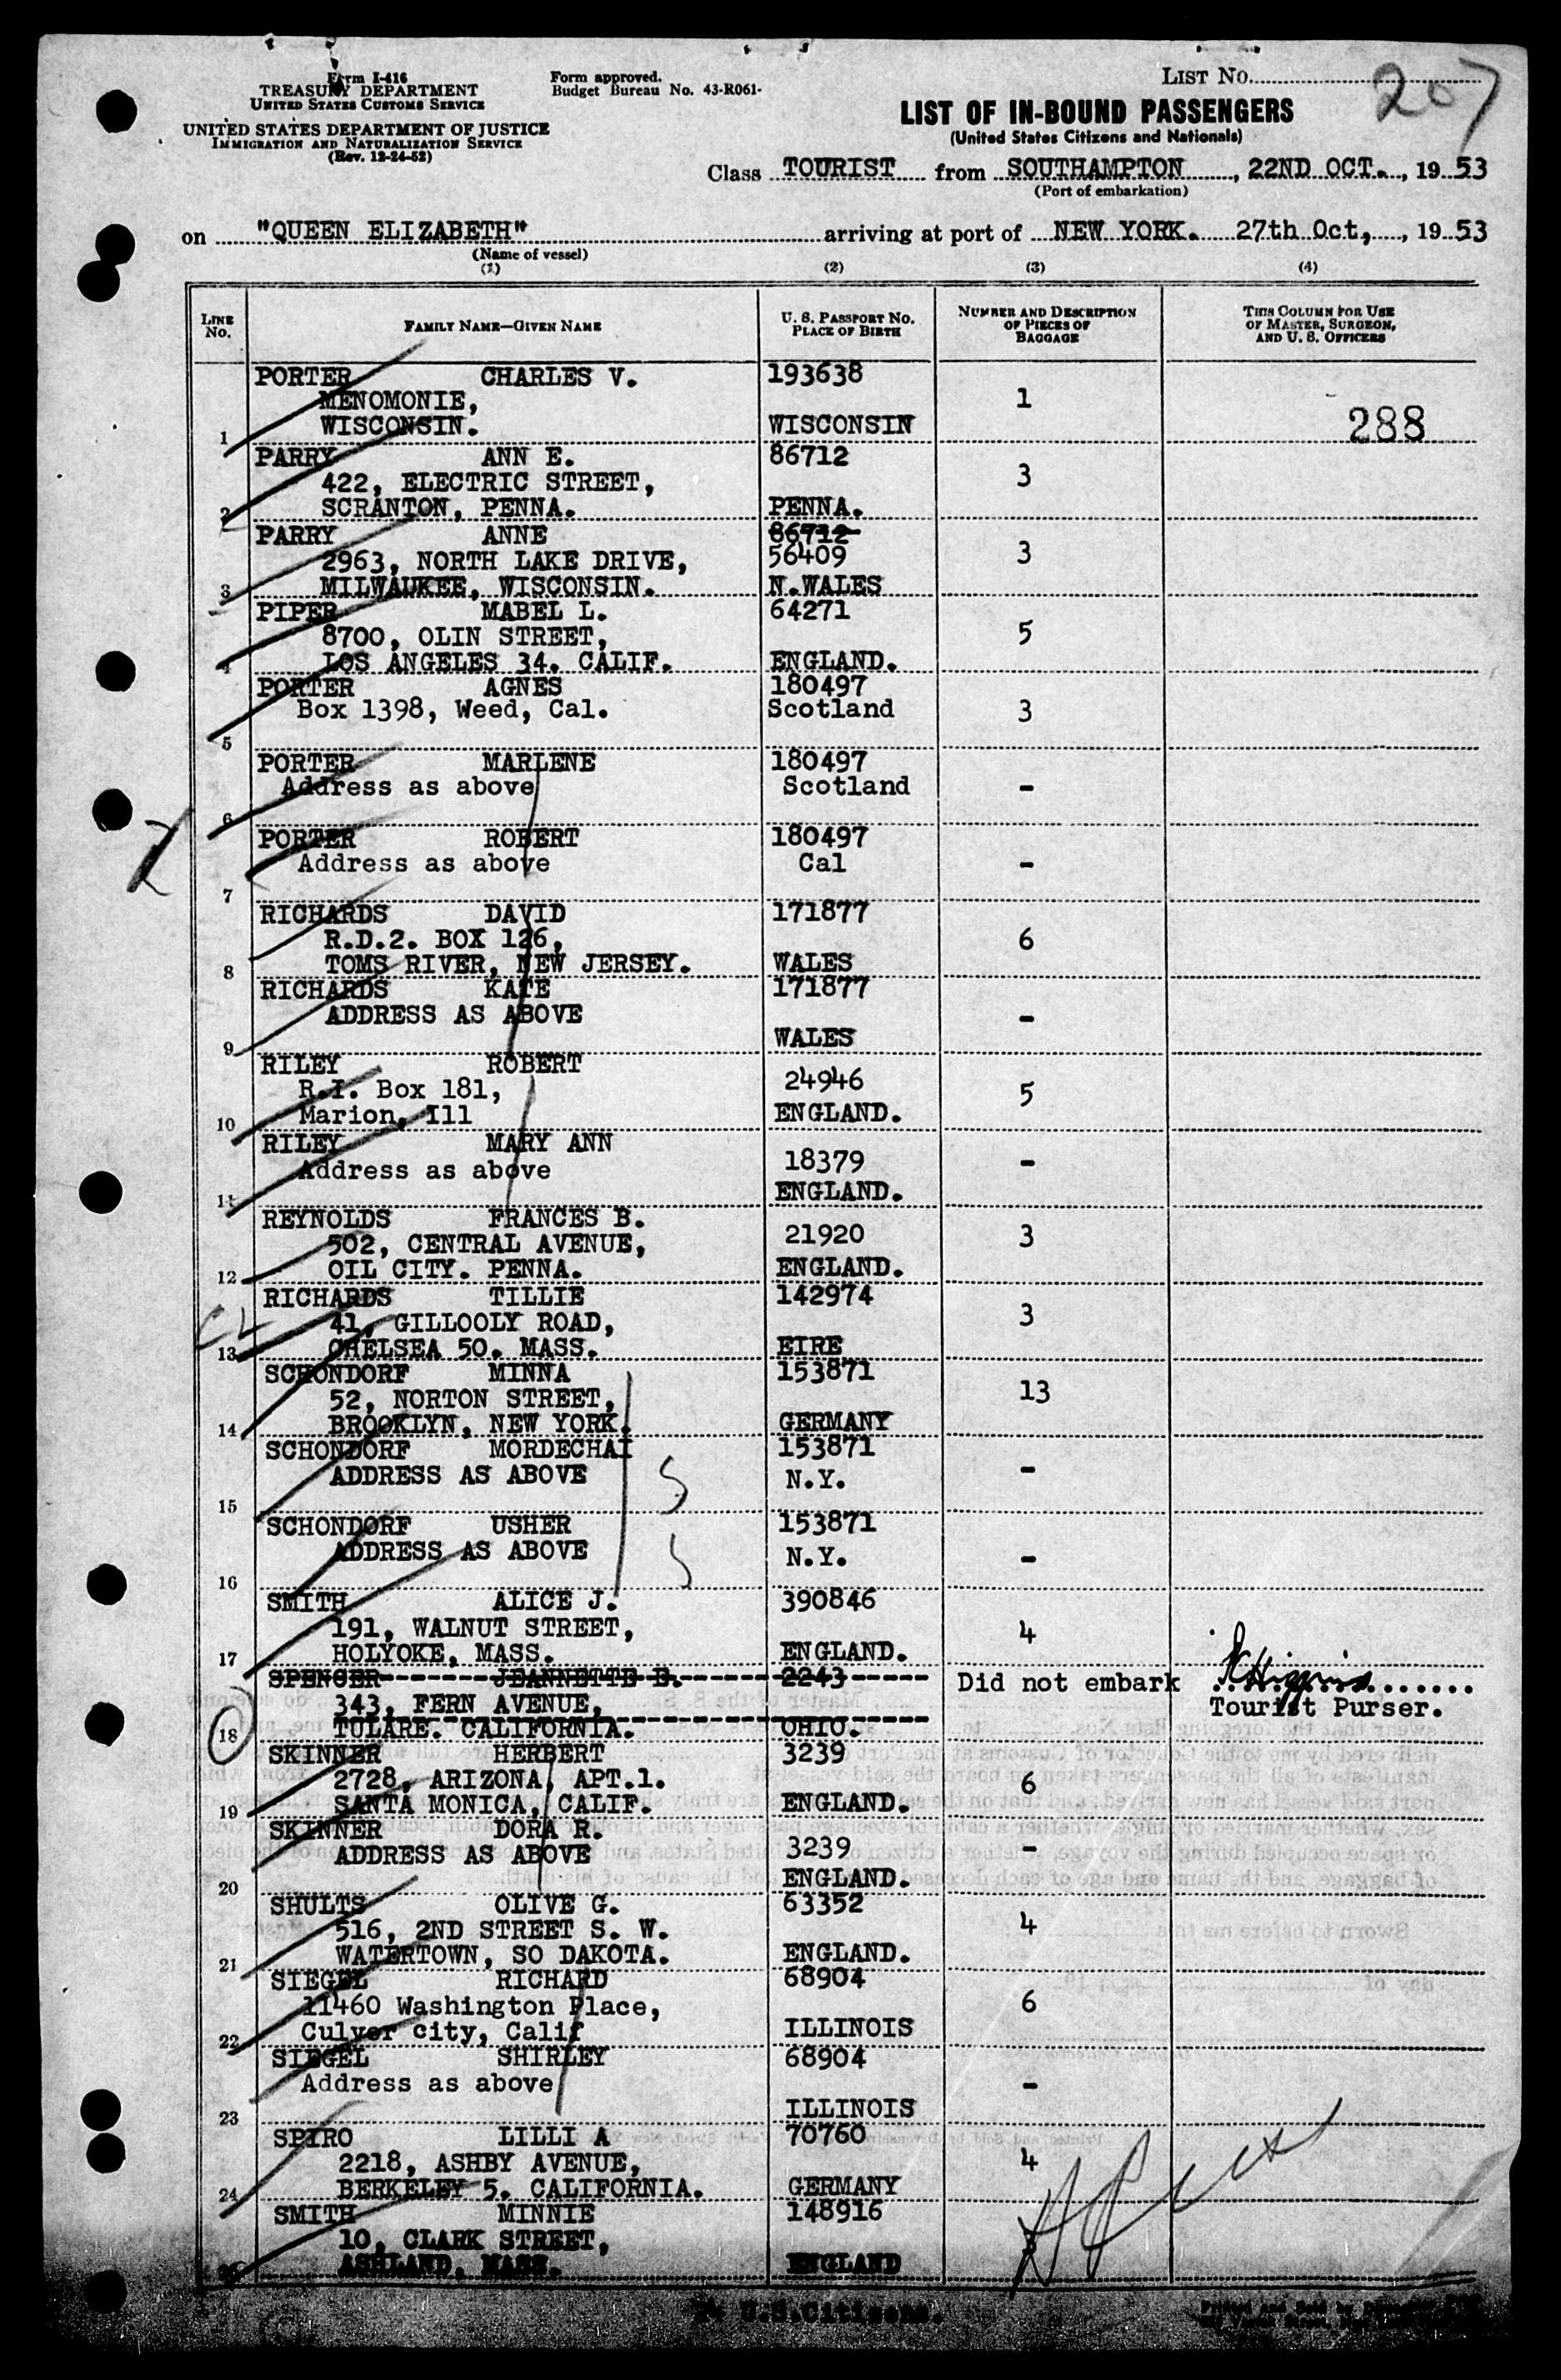 Form I-416
TREASURY DEPARTMENT
UNITED STATES CUSTOMS SERVICE
UNITED STATES DEPARTMENT OF JUSTICE
IMMIGRATION AND NATURALIZATION SERVICE
(Rev. 12-24-52)
Form approved.
Budget Bureau No. 43-R061-
LIST NO. 207
LIST OF IN-BOUND PASSENGERS
(United States Citizens and Nationals)
Class TOURIST from SOUTHAMPTON, 22ND OCT., 1953
(Port of embarkation)
on "QUEEN ELIZABETH" arriving at port of NEW YORK. 27th Oct, , 1953
(Name of vessel)
(1) (2) (3) (4)
LINE NO.
FAMILY NAME—GIVEN NAME
U. S. PASSPORT NO.
PLACE OF BIRTH
NUMBER AND DESCRIPTION
OF PIECES OF
BAGGAGE
THIS COLUMN FOR USE
OF MASTER, SURGEON,
AND U. S. OFFICERS
PORTER CHARLES V. 193638
MENOMONIE, 1
1 WISCONSIN. WISCONSIN 288
PARRY ANN E. 86712
422, ELECTRIC STREET, 3
2 SCRANTON, PENNA. PENNA.
PARRY ANNE 86712
2963, NORTH LAKE DRIVE, 56409 3
3 MILWAUKEE, WISCONSIN. N.WALES
PIPER MABEL L. 64271
8700, OLIN STREET, 5
4 LOS ANGELES 34. CALIF. ENGLAND.
PORTER AGNES 180497
Box 1398, Weed, Cal. Scotland 3
5
PORTER MARLENE 180497
Address as above Scotland -
6
PORTER ROBERT 180497
Address as above Cal -
7
RICHARDS DAVID 171877
R.D.2. BOX 126, 6
8 TOMS RIVER, NEW JERSEY. WALES
RICHARDS KATE 171877
ADDRESS AS ABOVE -
9 WALES
RILEY ROBERT
R.I. Box 181, 24946 5
10 Marion, Ill ENGLAND.
RILEY MARY ANN
Address as above 18379 -
11 ENGLAND.
REYNOLDS FRANCES B.
502, CENTRAL AVENUE, 21920 3
12 OIL CITY. PENNA. ENGLAND.
RICHARDS TILLIE 142974
41, GILLOOLY ROAD, 3
13 CHELSEA 50. MASS. EIRE
SCHONDORF MINNA 153871
52, NORTON STREET, 13
14 BROOKLYN, NEW YORK. GERMANY
SCHONDORF MORDECHAI 153871
ADDRESS AS ABOVE N.Y. -
15
SCHONDORF USHER 153871
ADDRESS AS ABOVE N.Y. -
16
SMITH ALICE J. 390846
191, WALNUT STREET, 4
17 HOLYOKE, MASS. ENGLAND.
SPENCER JEANNETTE E. 2243 Did not embark
343, FERN AVENUE, Tourist Purser.
18 TULARE. CALIFORNIA. OHIO.
SKINNER HERBERT 3239
2728, ARIZONA, APT.1. 6
19 SANTA MONICA, CALIF. ENGLAND.
SKINNER DORA R.
ADDRESS AS ABOVE 3239 -
20 ENGLAND.
SHULTS OLIVE G. 63352
516, 2ND STREET S. W. 4
21 WATERTOWN, SO DAKOTA. ENGLAND.
SIEGEL RICHARD 68904
11460 Washington Place, 6
22 Culver city, Calif ILLINOIS
SIEGEL SHIRLEY 68904
Address as above -
23 ILLINOIS
SPIRO LILLI A 70760
2218, ASHBY AVENUE, 4
24 BERKELEY 5. CALIFORNIA. GERMANY
SMITH MINNIE 148916
10, CLARK STREET,
ASHLAND, MASS. ENGLAND
24 U.S.Citizens.